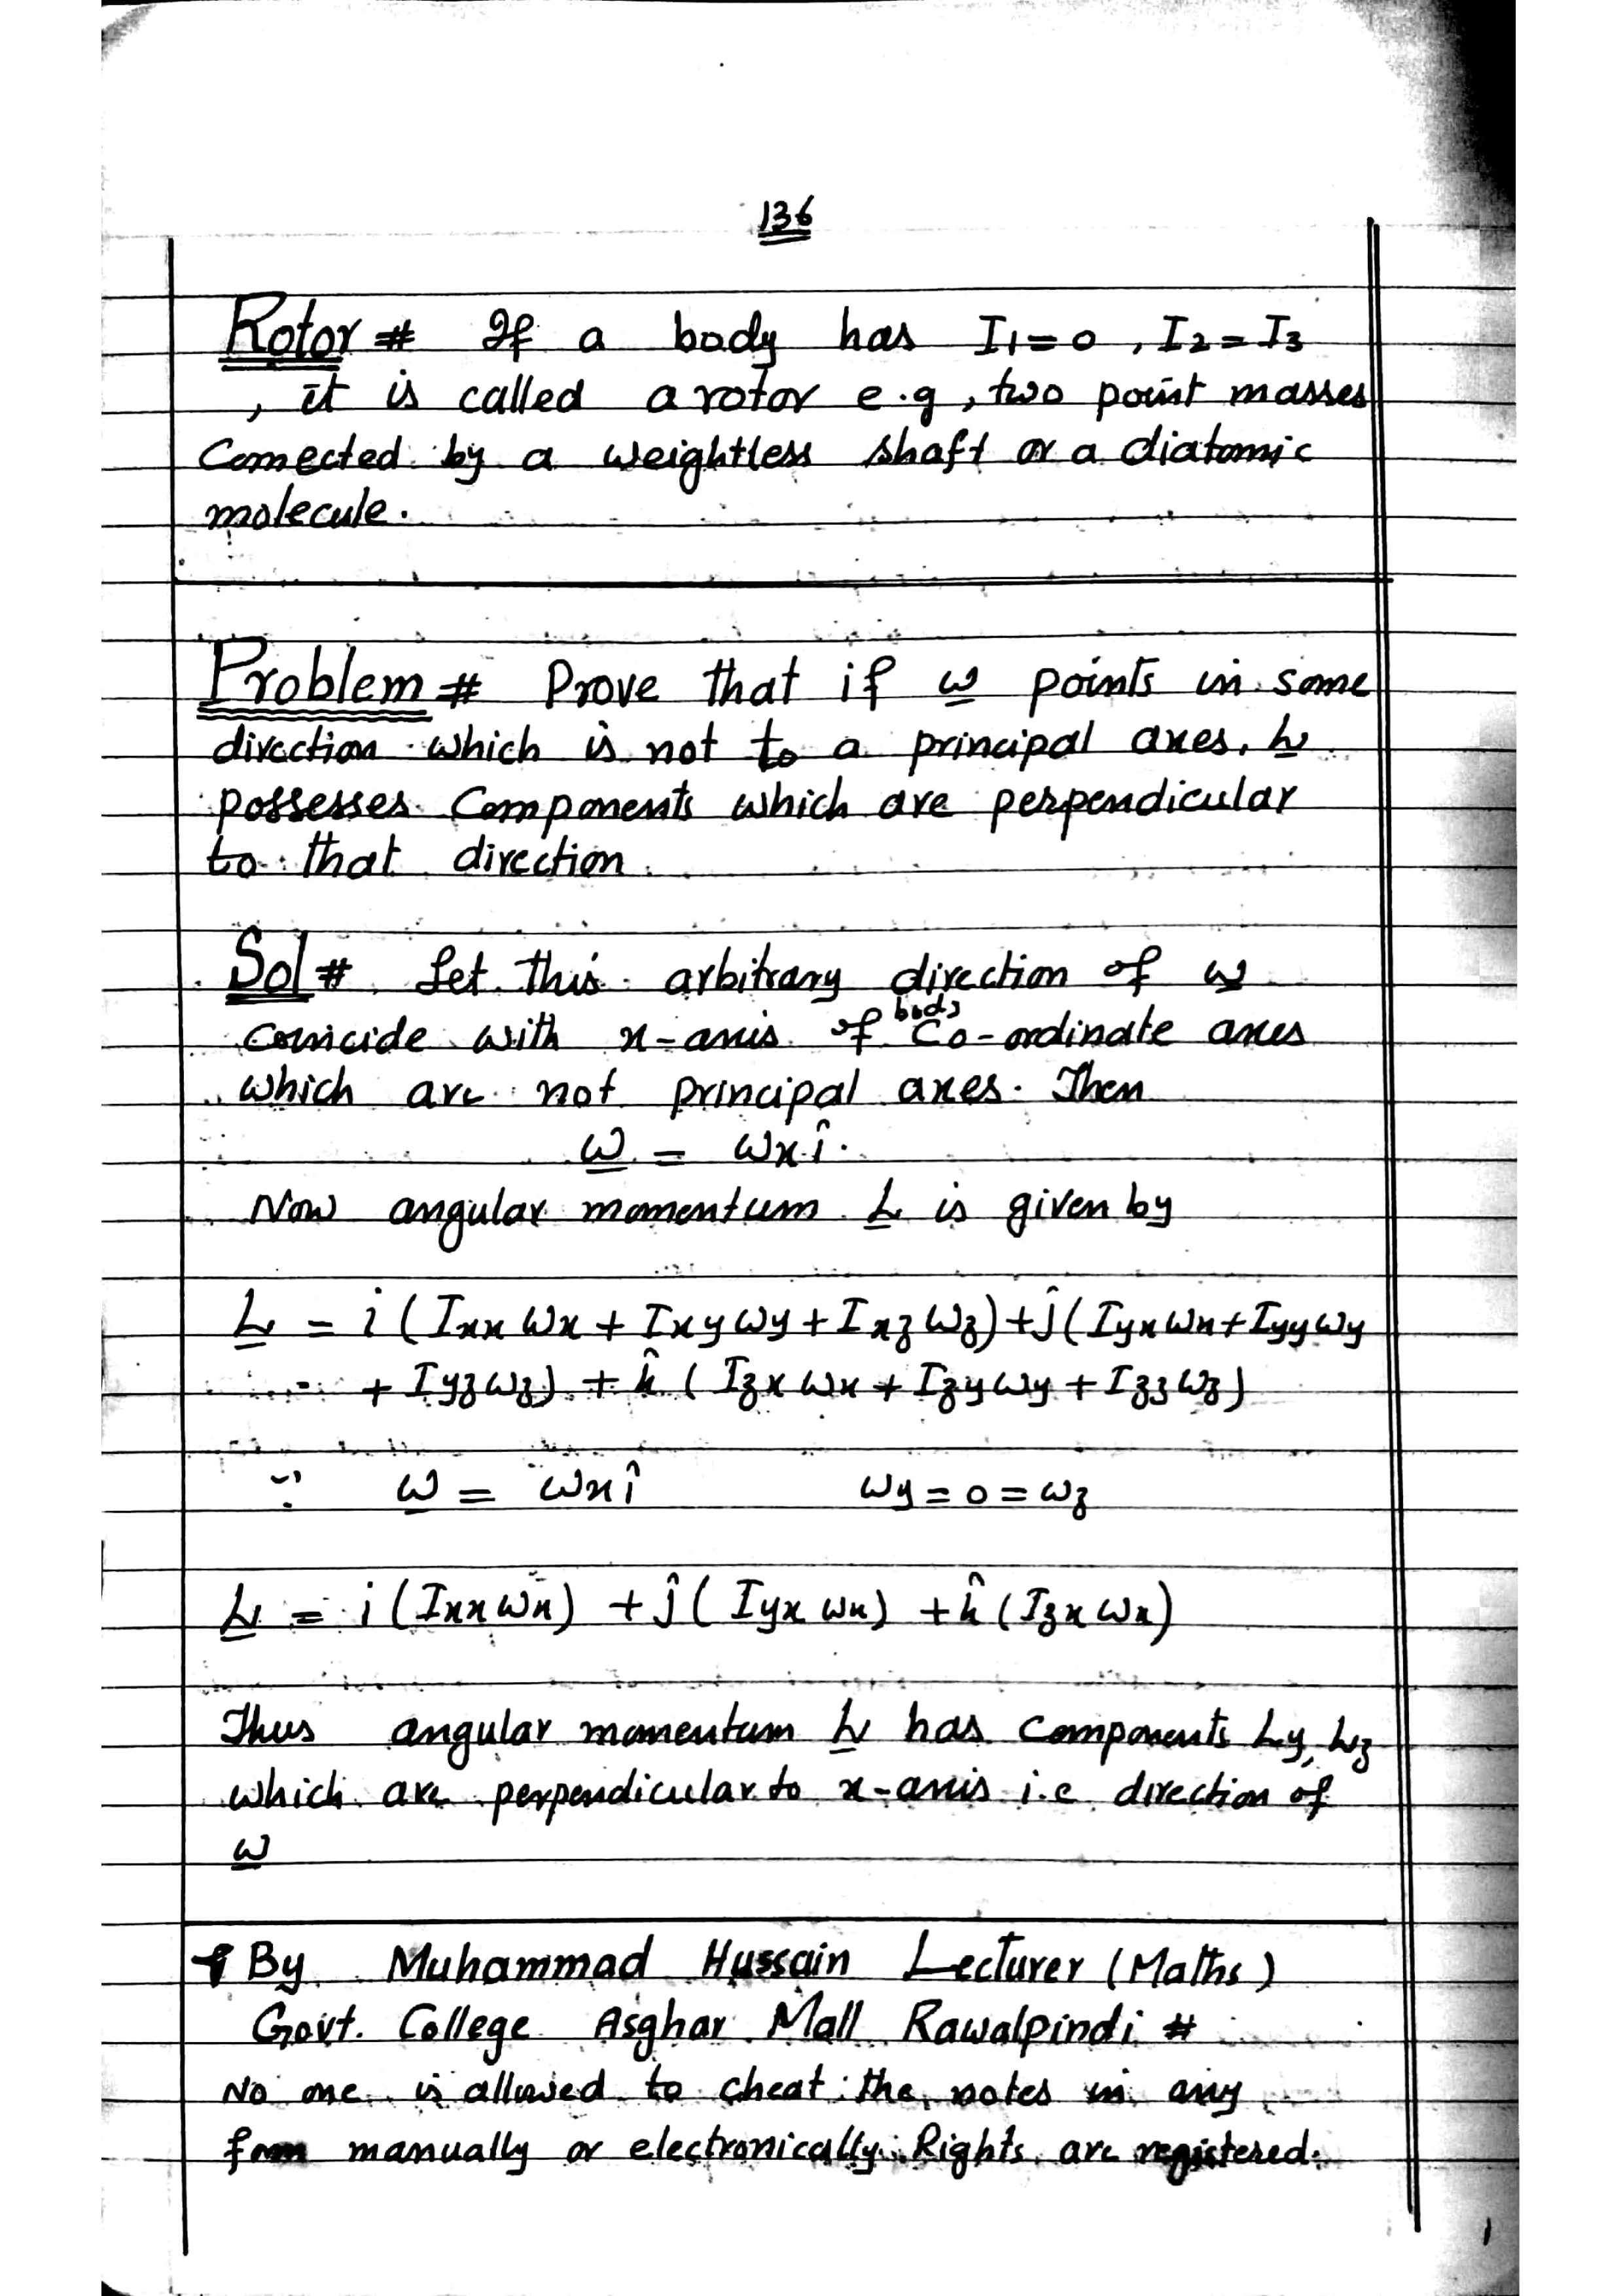 136
Rotor # If a body has I1=0, I2=I3
, it is called a rotor e.g, two point masses
Connected by a weightless shaft or a diatomic
molecule.
Problem # Prove that if ω points in some
direction which is not to a principal axes, L
possesses Components which are perpendicular
to that direction.
Sol # Let this arbitrary direction of ω
body
coincide with x-axis of Co-ordinate axes
which are not principal axes. Then
ω = ωx î.
Now angular momentum L is given by
L = i (Ixx ωx + Ixy ωy + Ixz ωz) + ĵ (Iyx ωx + Iyy ωy
+ Iyz ωz) + k̂ (Izx ωx + Izy ωy + Izz ωz)
∵ ω = ωx î ωy = 0 = ωz
L = i (Ixx ωx) + ĵ (Iyx ωx) + k̂ (Izx ωx)
Thus angular momentum L has components Ly, Lz
which are perpendicular to x-axis i.e direction of
ω
By Muhammad Hussain Lecturer (Maths)
Govt. College Asghar Mall Rawalpindi #
No one is allowed to cheat the notes in any
form manually or electronically. Rights are registered.